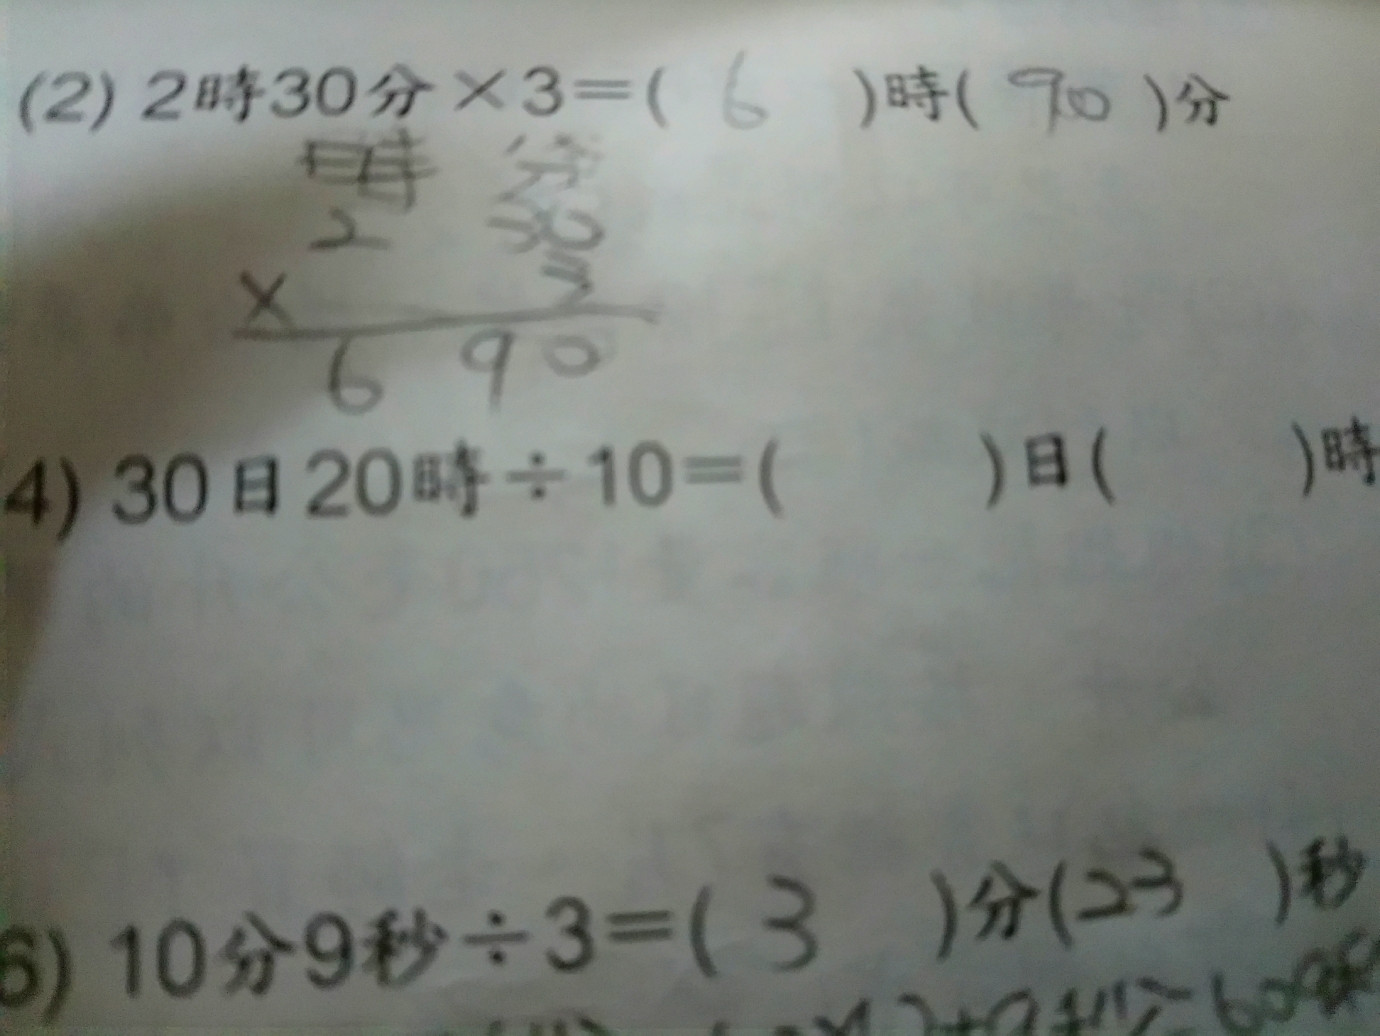 (2) 2時30分×3=( 6 )時( 90 )分
時 分
2 30
× 3
6 90
4) 30日20時÷10=( )日( )時
6) 10分9秒÷3=( 3 )分(23 )秒